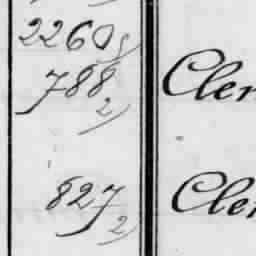 2260
788 2) Cler
827 2) Cler